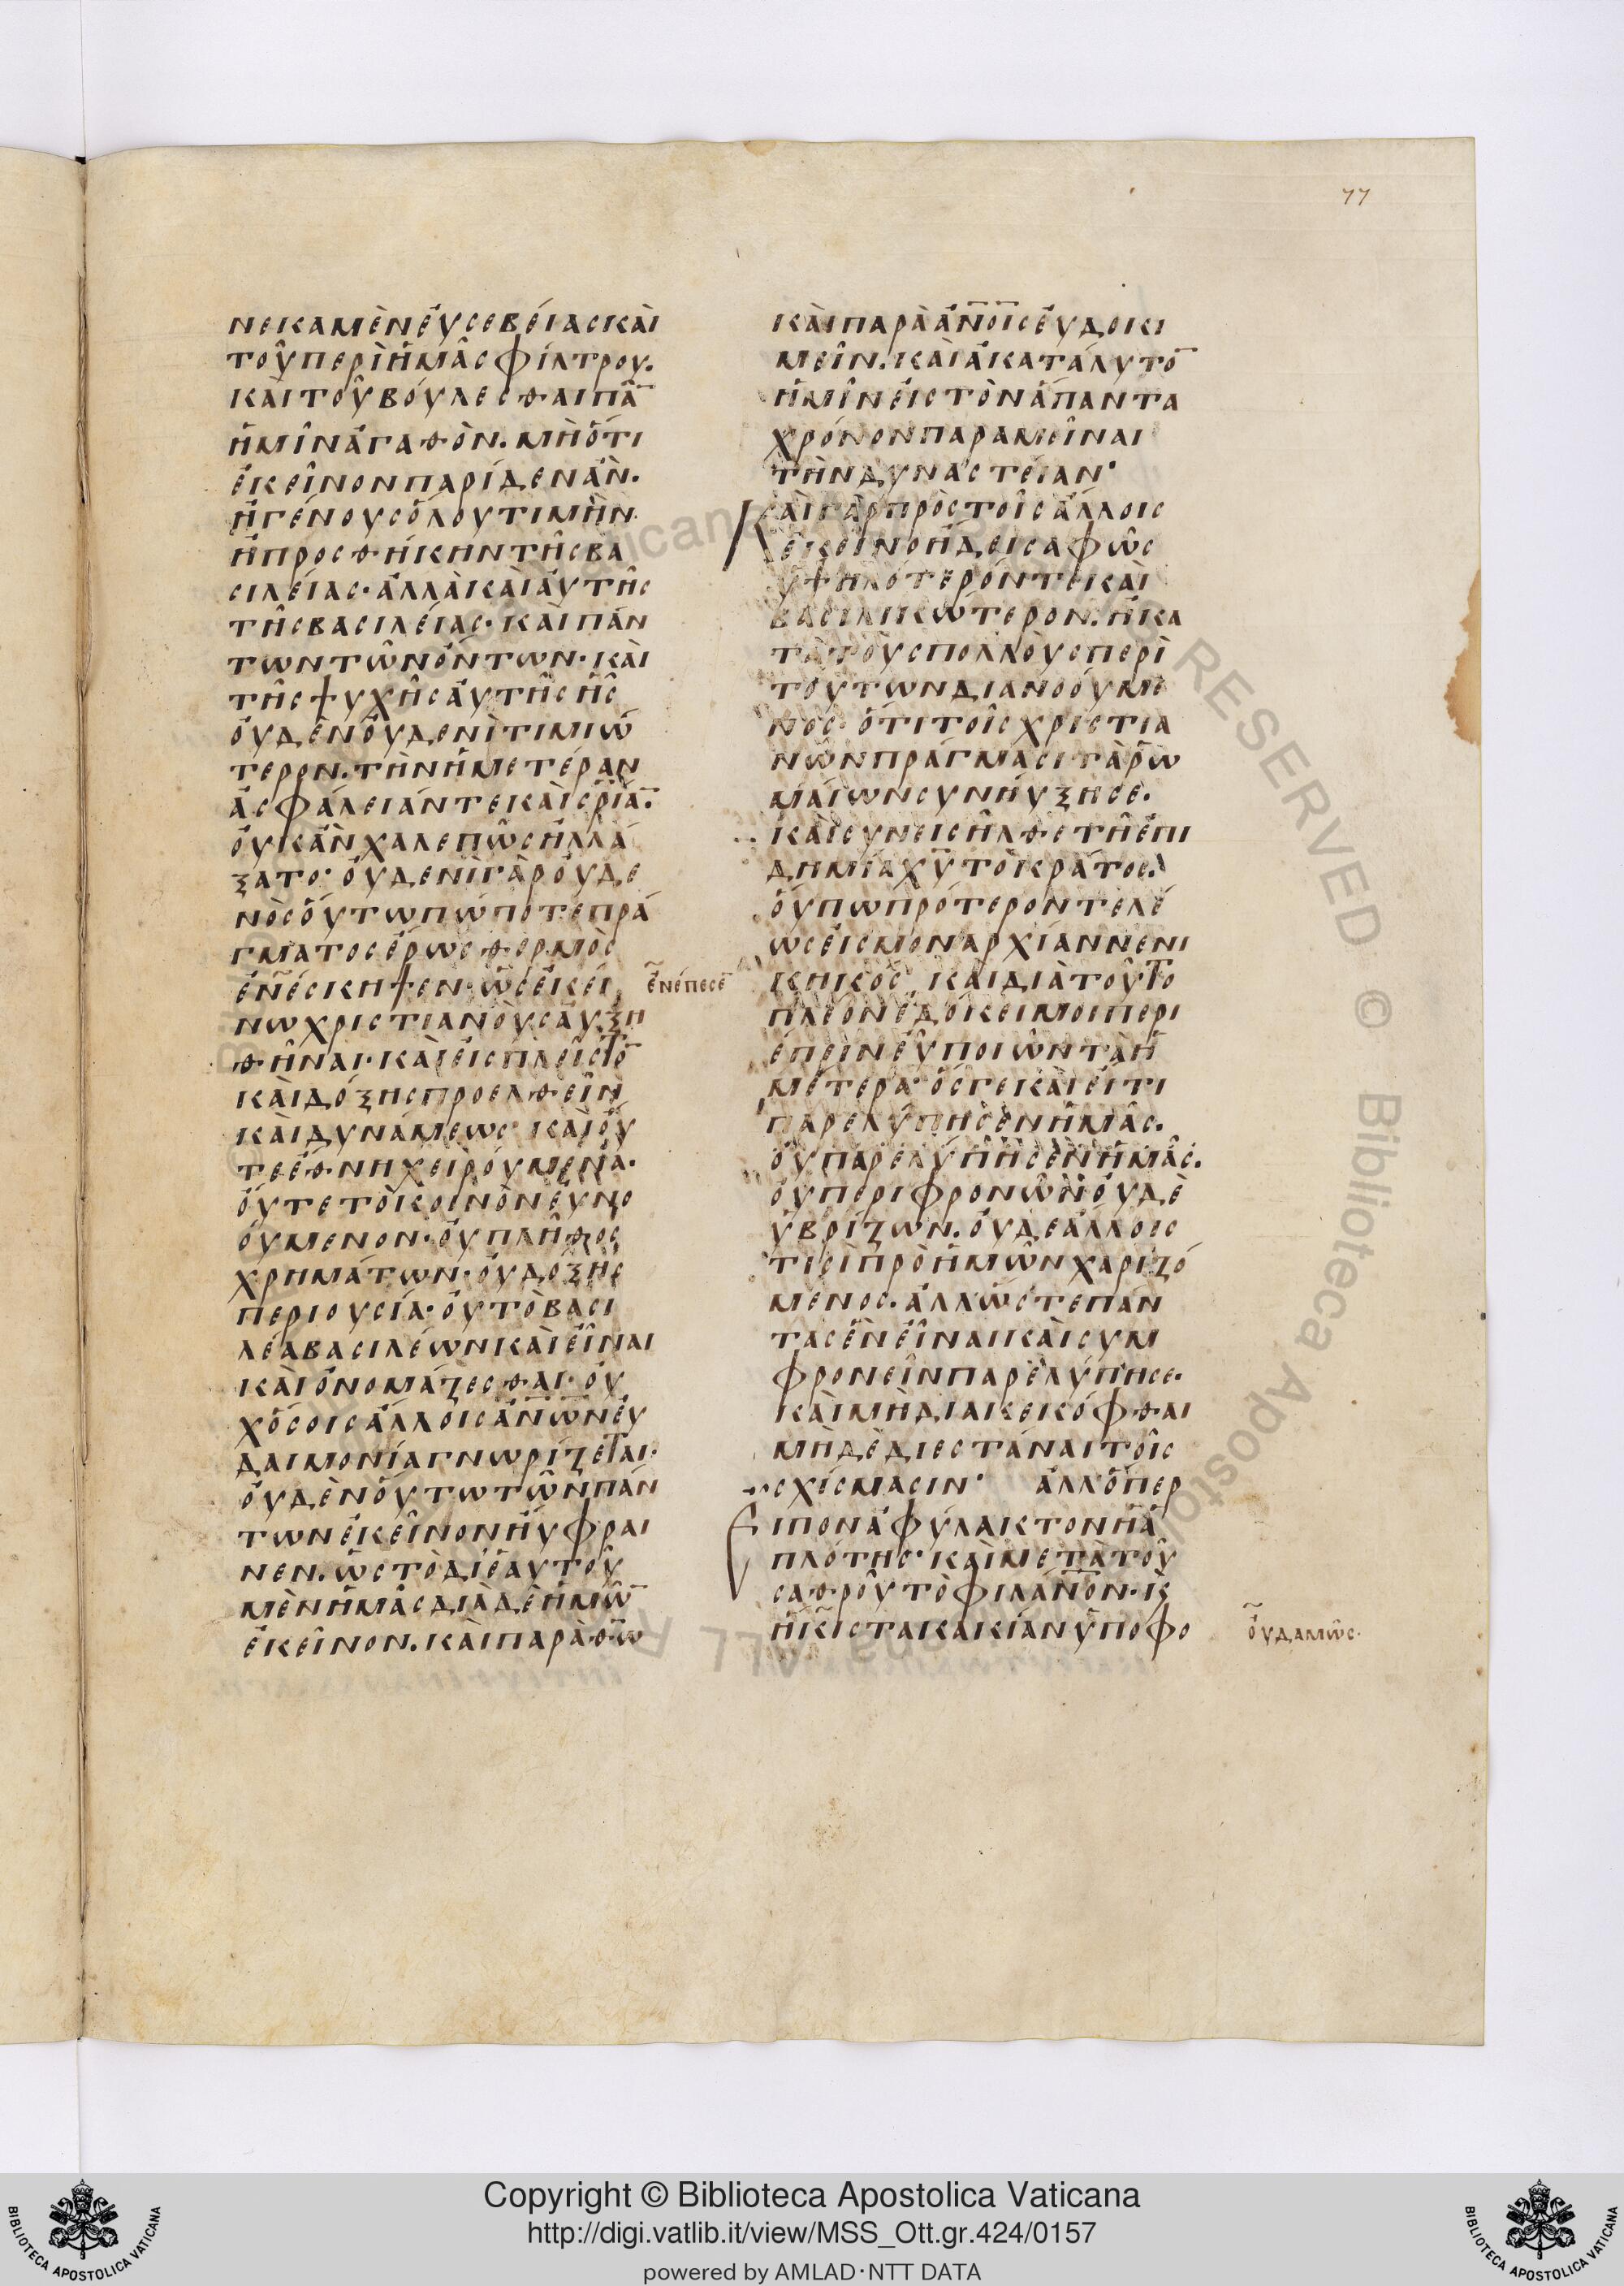 77
νεκαμὲνἐυσεβείασκαὶ
τοῦπερὶἡμᾶσφίλτρου.
καὶτοῦβούλεσθαιπᾶ̅
ἡμῖνἀγαθὸν.μὴὅτι
ἐκεῖνονπαρίδενἂν.
ἢγένουσὅλουτιμὴν
ἢπροσθήκηντῆσβα
σιλείασ·ἀλλὰκαὶἀυτῆσ
τῆσβασιλείασ·καὶπάν
τωντῶνὄντων·καὶ
τῆσψυχῆσἀυτῆσἧσ
ὀυδὲνὀυδενὶτιμιώ
τερον.τὴνἡμετέραν
ἀσφάλειάντεκαὶσ̅ρ̅ία̅.
ὀυκἂνχαλεπῶσἠλλά
ξατο·ὀυδενὶγὰρὀυδε
νὸσὅυτωπώποτεπρά
γματοσἔρωσθερμὸσ
ἐνέσκηψεν·ὡσἐκεί
ἐνέπεσε̅
νωχριστιανὸυσἀυξη
θῆναι·καὶἐισπλεῖστο̅
καὶδόξησπροελθεῖν
καὶδυνάμεωσ·καὶὄυ
τεἔθνηχειρόυμενα·
ὄυτετὸκοινὸνευνο
όυμενον·ὀυπλῆθοσ
χρημάτων·ὀυδόξησ
περιουσία·ὀυτὸβασι
λέαβασιλέωνκαὶεἶναι
καὶὀνομάζεσθαι·ὀυ
χὅσοισἄλλοισἀν̅ω̅νἐυ
δαιμονίαγνωρίζεται·
ὀυδὲνὅυτωτῶνπάν
τωνἐκεῖνονἠύφραι
νεν.ὡστὸδιἑαυτοῦ
μὲνἡμᾶσδιὰδὲἡμῶ̅
ἐκεῖνον.καὶπαρὰθ̅ω
καὶπαρὰἀν̅ο̅ισἐυδοκι
μεῖν.καὶἀκατάλυτο̅
ἡμῖνἐιστὸνἅπαντα
χρόνονπαραμεῖναι
τὴνδυναστείαν·
Καὶγὰρπρὸστοῖσἄλλοισ
ἐκεῖνοἤδεισαφῶσ
ὑψηλότερόντεκαὶ
βασιλικώτερον.ἢκα
τὰτὸυσπολλὸυσπερὶ
τούτωνδιανοούμε
νοσ·ὅτιτοῖσχριστια
νῶνπράγμασιτὰρω
μαίωνσυνηύξησε.
καὶσυνεισῆλθετῆἐπι
δημίαχ̅υ̅τὸκράτοσ.
ὄυπωπρότεροντελέ
ωσἐισμοναρχίαννενι
κηκὸσ·καὶδιὰτοῦτο
πλέονἐδόκειμοιπερι
έπεινἐυποιῶντὰἡ
μέτερα·ὅσγεκαὶἔιτι
παρελύπησενἡμᾶσ.
ὀυπαρελύπησενἡμᾶσ.
ὀυπεριφρονῶνὀυδὲ
ὑβρίζων.ὀυδεάλλοισ
τισὶπρὸἡμῶνχαριζό
μενοσ.ἀλλ᾽ὥστεπάν
τασἓνεἶναικαὶσυμ
φρονεῖνπαρελύπησε.
καὶμὴδιακεκόφθαι
μὴδὲδιεστάναιτοῖσ
σχίσμασιν· ἀλλ᾽ὅπερ
Εἶπονἀφύλακτονἡἁ
πλότησ·καὶμετὰτοῦ
σαθροῦτὸφιλάν̅ο̅ν·κ̀
ἥκιστακακίανὑποφο
ὀυδαμῶσ·
Copyright © Biblioteca Apostolica Vaticana
http://digi.vatlib.it/view/MSS_Ott.gr.424/0157
powered by AMLAD·NTT DATA
BIBLIOTECA APOSTOLICA VATICANA
BIBLIOTECA APOSTOLICA VATICANA